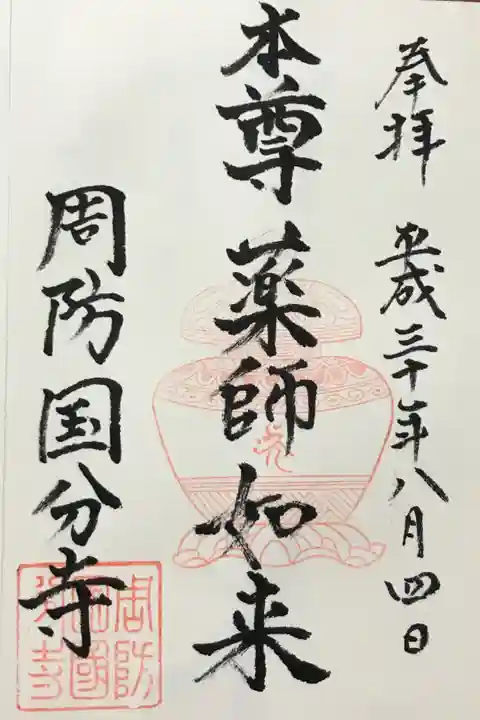 奉拝 平成三十年八月四日
本尊薬師如来
周防国分寺